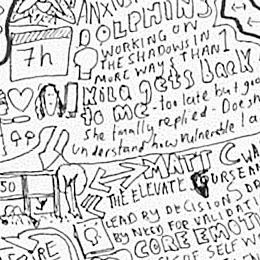 ANXIOU
DOLPHINS
WORKING ON
THE SHADOWS IN
MORE WAYS THAN 1
7h
Mila gets back
to me - too late but goo
she finally replied - Doesn
understand how vulnerable I a
MATT C WA
50
THE ELEVATE YOURSEA
LEAD BY DECISIONS DR
BY NEED FOR VALIDATI
CORE EMOTI
SELF W
RE